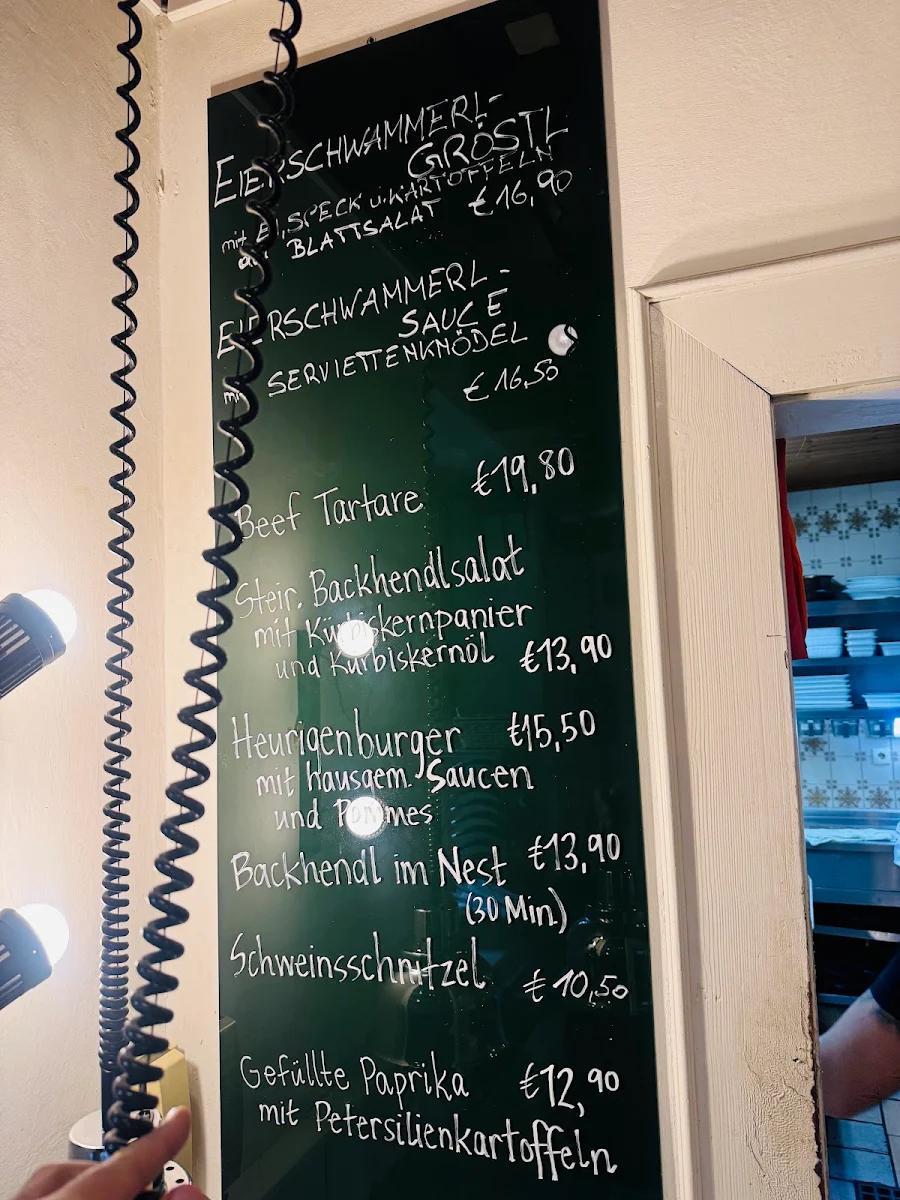 EIERSCHWAMMERL-
GRÖSTL
mit EI, SPECK u. KARTOFFELN
auf BLATTSALAT €16,90
EIERSCHWAMMERL-
SAUCE
mit SERVIETTENKNÖDEL
€16,50
Beef Tartare €19,80
Steir. Backhendlsalat
mit Kürbiskernpanier
und Kürbiskernöl €13,90
Heurigenburger €15,50
mit hausgem. Saucen
und Pommes
Backhendl im Nest €13,90
(30 Min)
Schweinsschnitzel €10,50
Gefüllte Paprika €12,90
mit Petersilienkartoffeln